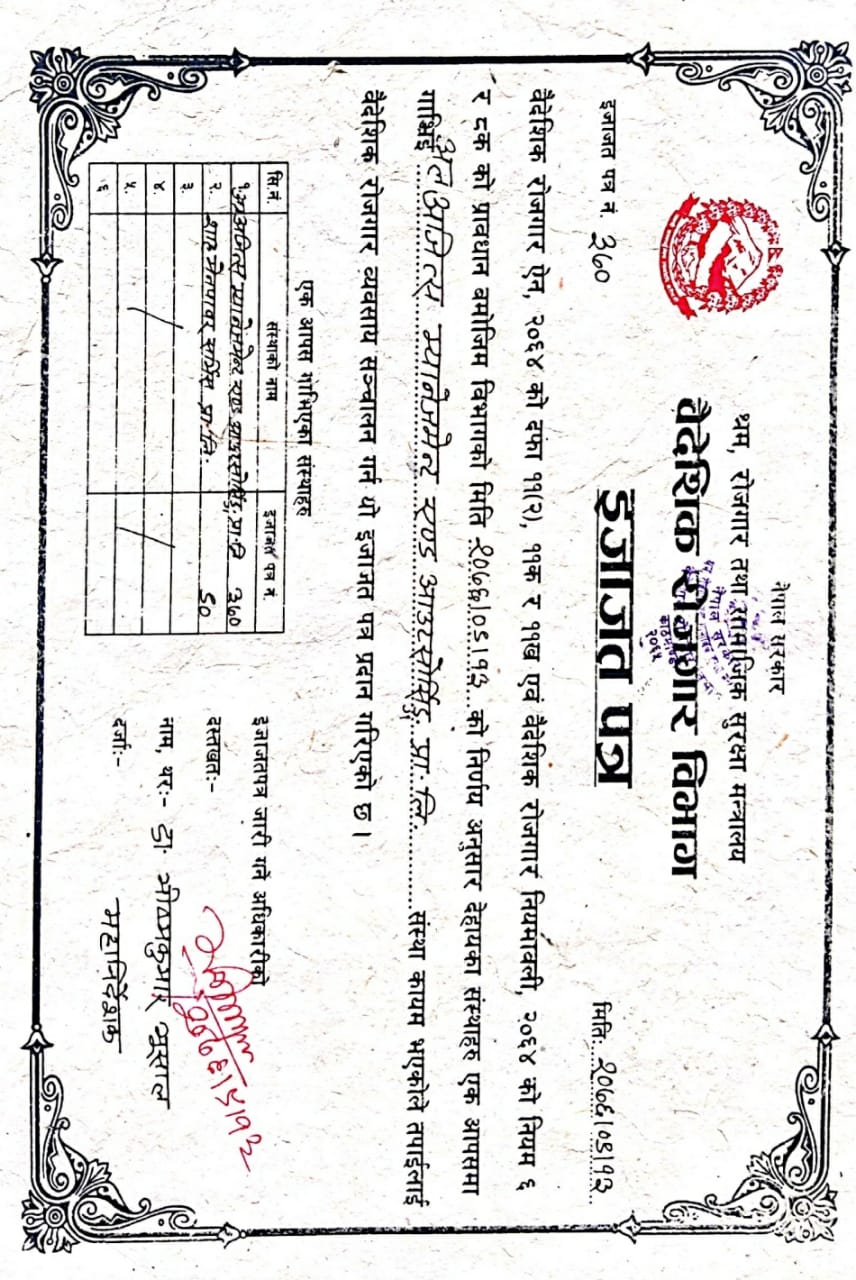 नेपाल सरकार
श्रम, रोजगार तथा सामाजिक सुरक्षा मन्त्रालय
वैदेशिक रोजगार विभाग
इजाजत पत्र
इजाजत पत्र नं. ३६०
मिति: २०७६।०८।१२
वैदेशिक रोजगार ऐन, २०६४ को दफा ११(२), ११क र ११ख एवं वैदेशिक रोजगार नियमावली, २०६४ को नियम ६
र ८क को प्रावधान बमोजिम विभागको मिति २०७६।०८।१२ को निर्णय अनुसार देहायका संस्थाहरु एक आपसमा
गाभिई म्यानेजमेन्ट एण्ड आउटसोर्सिङ्ग प्रा. लि. संस्था कायम भएकोले तपाईलाई
वैदेशिक रोजगार व्यवसाय सञ्चालन गर्न यो इजाजत पत्र प्रदान गरिएको छ ।
एक आपस गाभिएका संस्थाहरु
सि.नं संस्थाको नाम इजाजत पत्र नं.
१. म्यानेजमेन्ट एण्ड आउटसोर्सिङ्ग प्रा.लि ३६०
२. सर्भिस प्रा. लि. ५०
३.
४.
५.
६
इजाजतपत्र जारी गर्ने अधिकारीको
दस्तखत:-
२०७६।८।१२
नाम, थर:- डा. भीष्मकुमार भूसाल
दर्जा:- महानिर्देशक